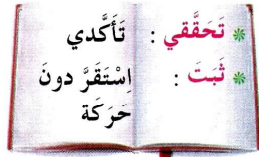 * تَحَقَّقي : تَأَكَّدي
* ثَبَتَ : اِسْتَقَرَّ دونَ
حَرَكَة